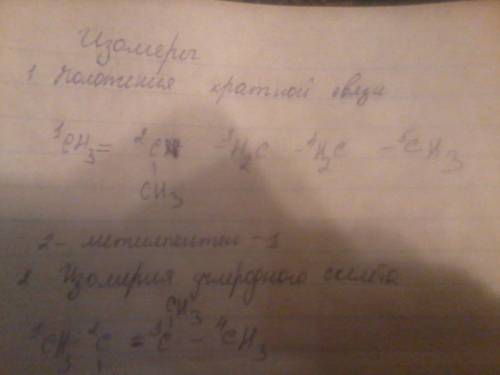 Изомеры
1 Положения кратной связи
¹CH₃= ²CH ³H₂C -⁴H₂C -⁵CH₃
CH₃
2-метилпентен-1
2 Изомерия углеродного скелета
CH₃
¹CH₃ ²C = ³C - ⁴CH₃